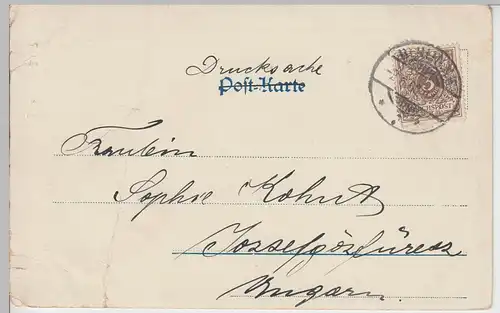 Drucksache
Post-Karte
Fräulein
Sophie Kohut
Ungarn.